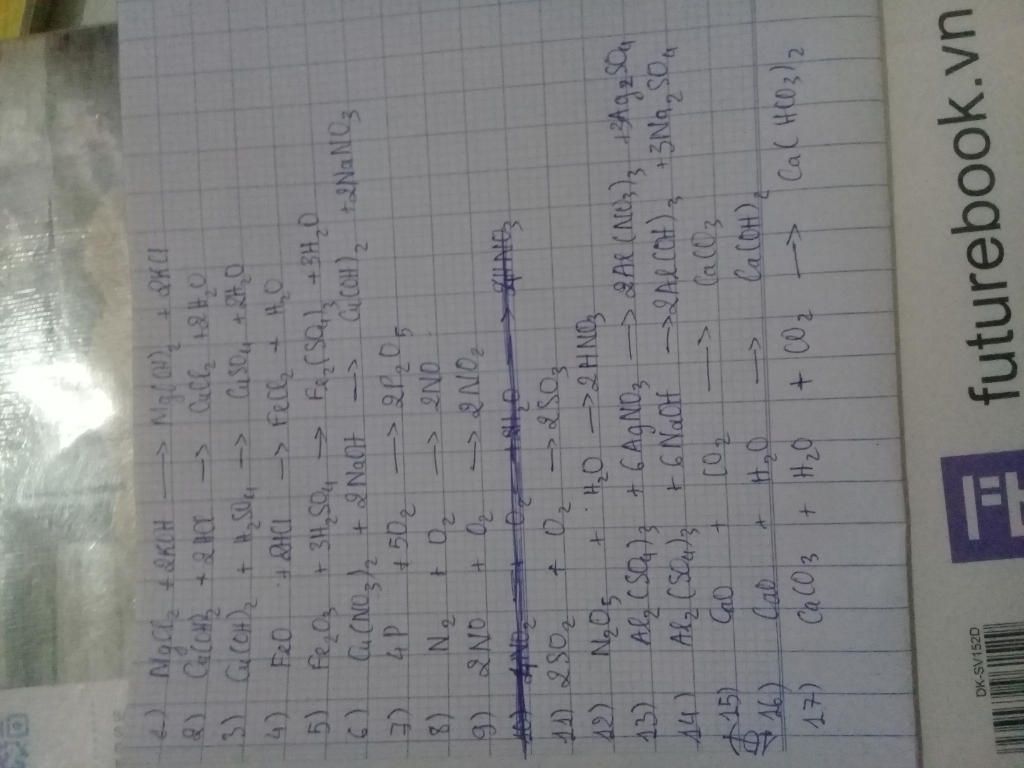 1) MgCl2 + 2KOH → Mg(OH)2 + 2KCl
2) Cu(OH)2 + 2HCl → CuCl2 + 2H2O
3) Cu(OH)2 + H2SO4 → CuSO4 + 2H2O
4) FeO + 2HCl → FeCl2 + H2O
5) Fe2O3 + 3H2SO4 → Fe2(SO4)3 + 3H2O
6) Cu(NO3)2 + 2NaOH → Cu(OH)2 + 2NaNO3
7) 4P + 5O2 → 2P2O5
8) N2 + O2 → 2NO
9) 2NO + O2 → 2NO2
10) 4NO2 + O2 + 2H2O → 4HNO3
11) 2SO2 + O2 → 2SO3
12) N2O5 + H2O → 2HNO3
13) Al2(SO4)3 + 6AgNO3 → 2Al(NO3)3 + 3Ag2SO4
14) Al2(SO4)3 + 6NaOH → 2Al(OH)3 + 3Na2SO4
15) CaO + CO2 → CaCO3
16) CaO + H2O → Ca(OH)2
17) CaCO3 + H2O + CO2 → Ca(HCO3)2
futurebook.vn
DK-SV152D